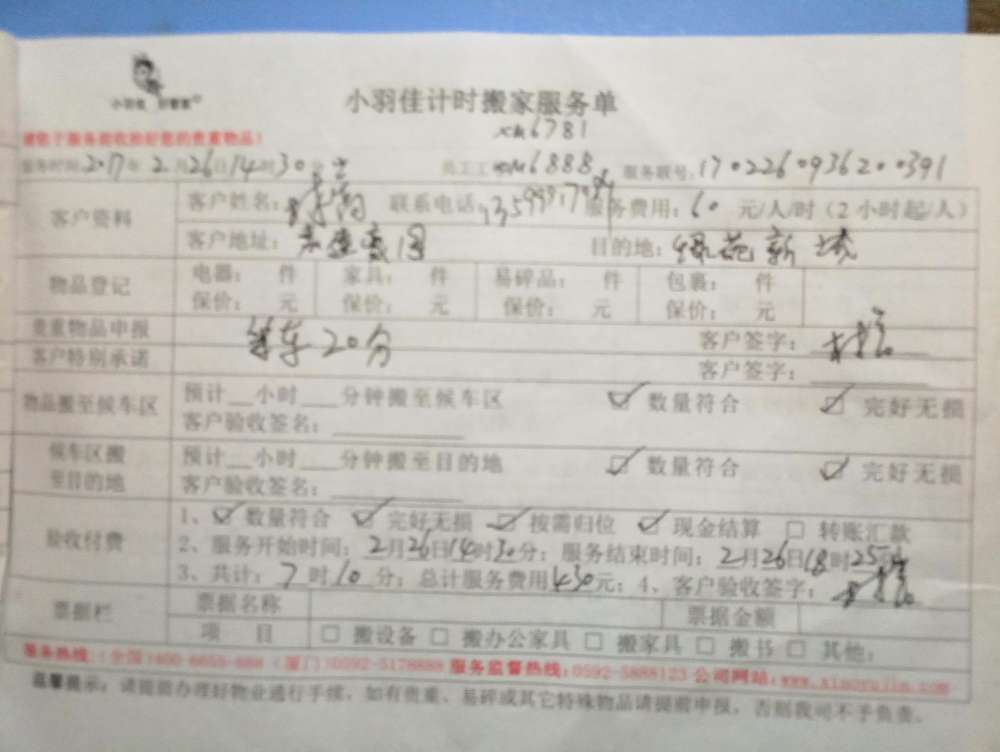 小羽佳计时搬家服务单
xm6781
服务时间2017年2月26日14时30分 员工工号xm6888 服务联号:1702260936200391
客户资料 客户姓名: 联系电话: 服务费用:60元/人/时(2小时起/人)
客户地址: 目的地:绿苑新城
物品登记 电器: 件 家具: 件 易碎品: 件 包裹: 件
保价: 元 保价: 元 保价: 元 保价: 元
贵重物品申报 客户签字:
等车20分
客户特别承诺 客户签字:
物品搬至候车区 预计__小时___分钟搬至候车区 ☑ 数量符合 ☑ 完好无损
客户验收签名:
候车区搬至目的地 预计__小时___分钟搬至目的地 ☑ 数量符合 ☑ 完好无损
客户验收签名:
验收付费 1、☑ 数量符合 ☑ 完好无损 ☑ 按需归位 ☑ 现金结算 □ 转账汇款
2、服务开始时间:2月26日14时30分;服务结束时间:2月26日18时25分
3、共计:7时10分;总计服务费用430元;4、客户验收签字:
票据栏 票据名称 票据金额
项目 □ 搬设备 □ 搬办公家具 □ 搬家具 □ 搬书 □ 其他:
服务热线:(全国)400-6655-888(厦门)0592-5178888 服务监督热线:0592-5888123 公司网站:www.xiaoyujia.com
温馨提示:请提前办理好物业通行手续,如有贵重、易碎或其它特殊物品请提前申报,否则我司不予负责。